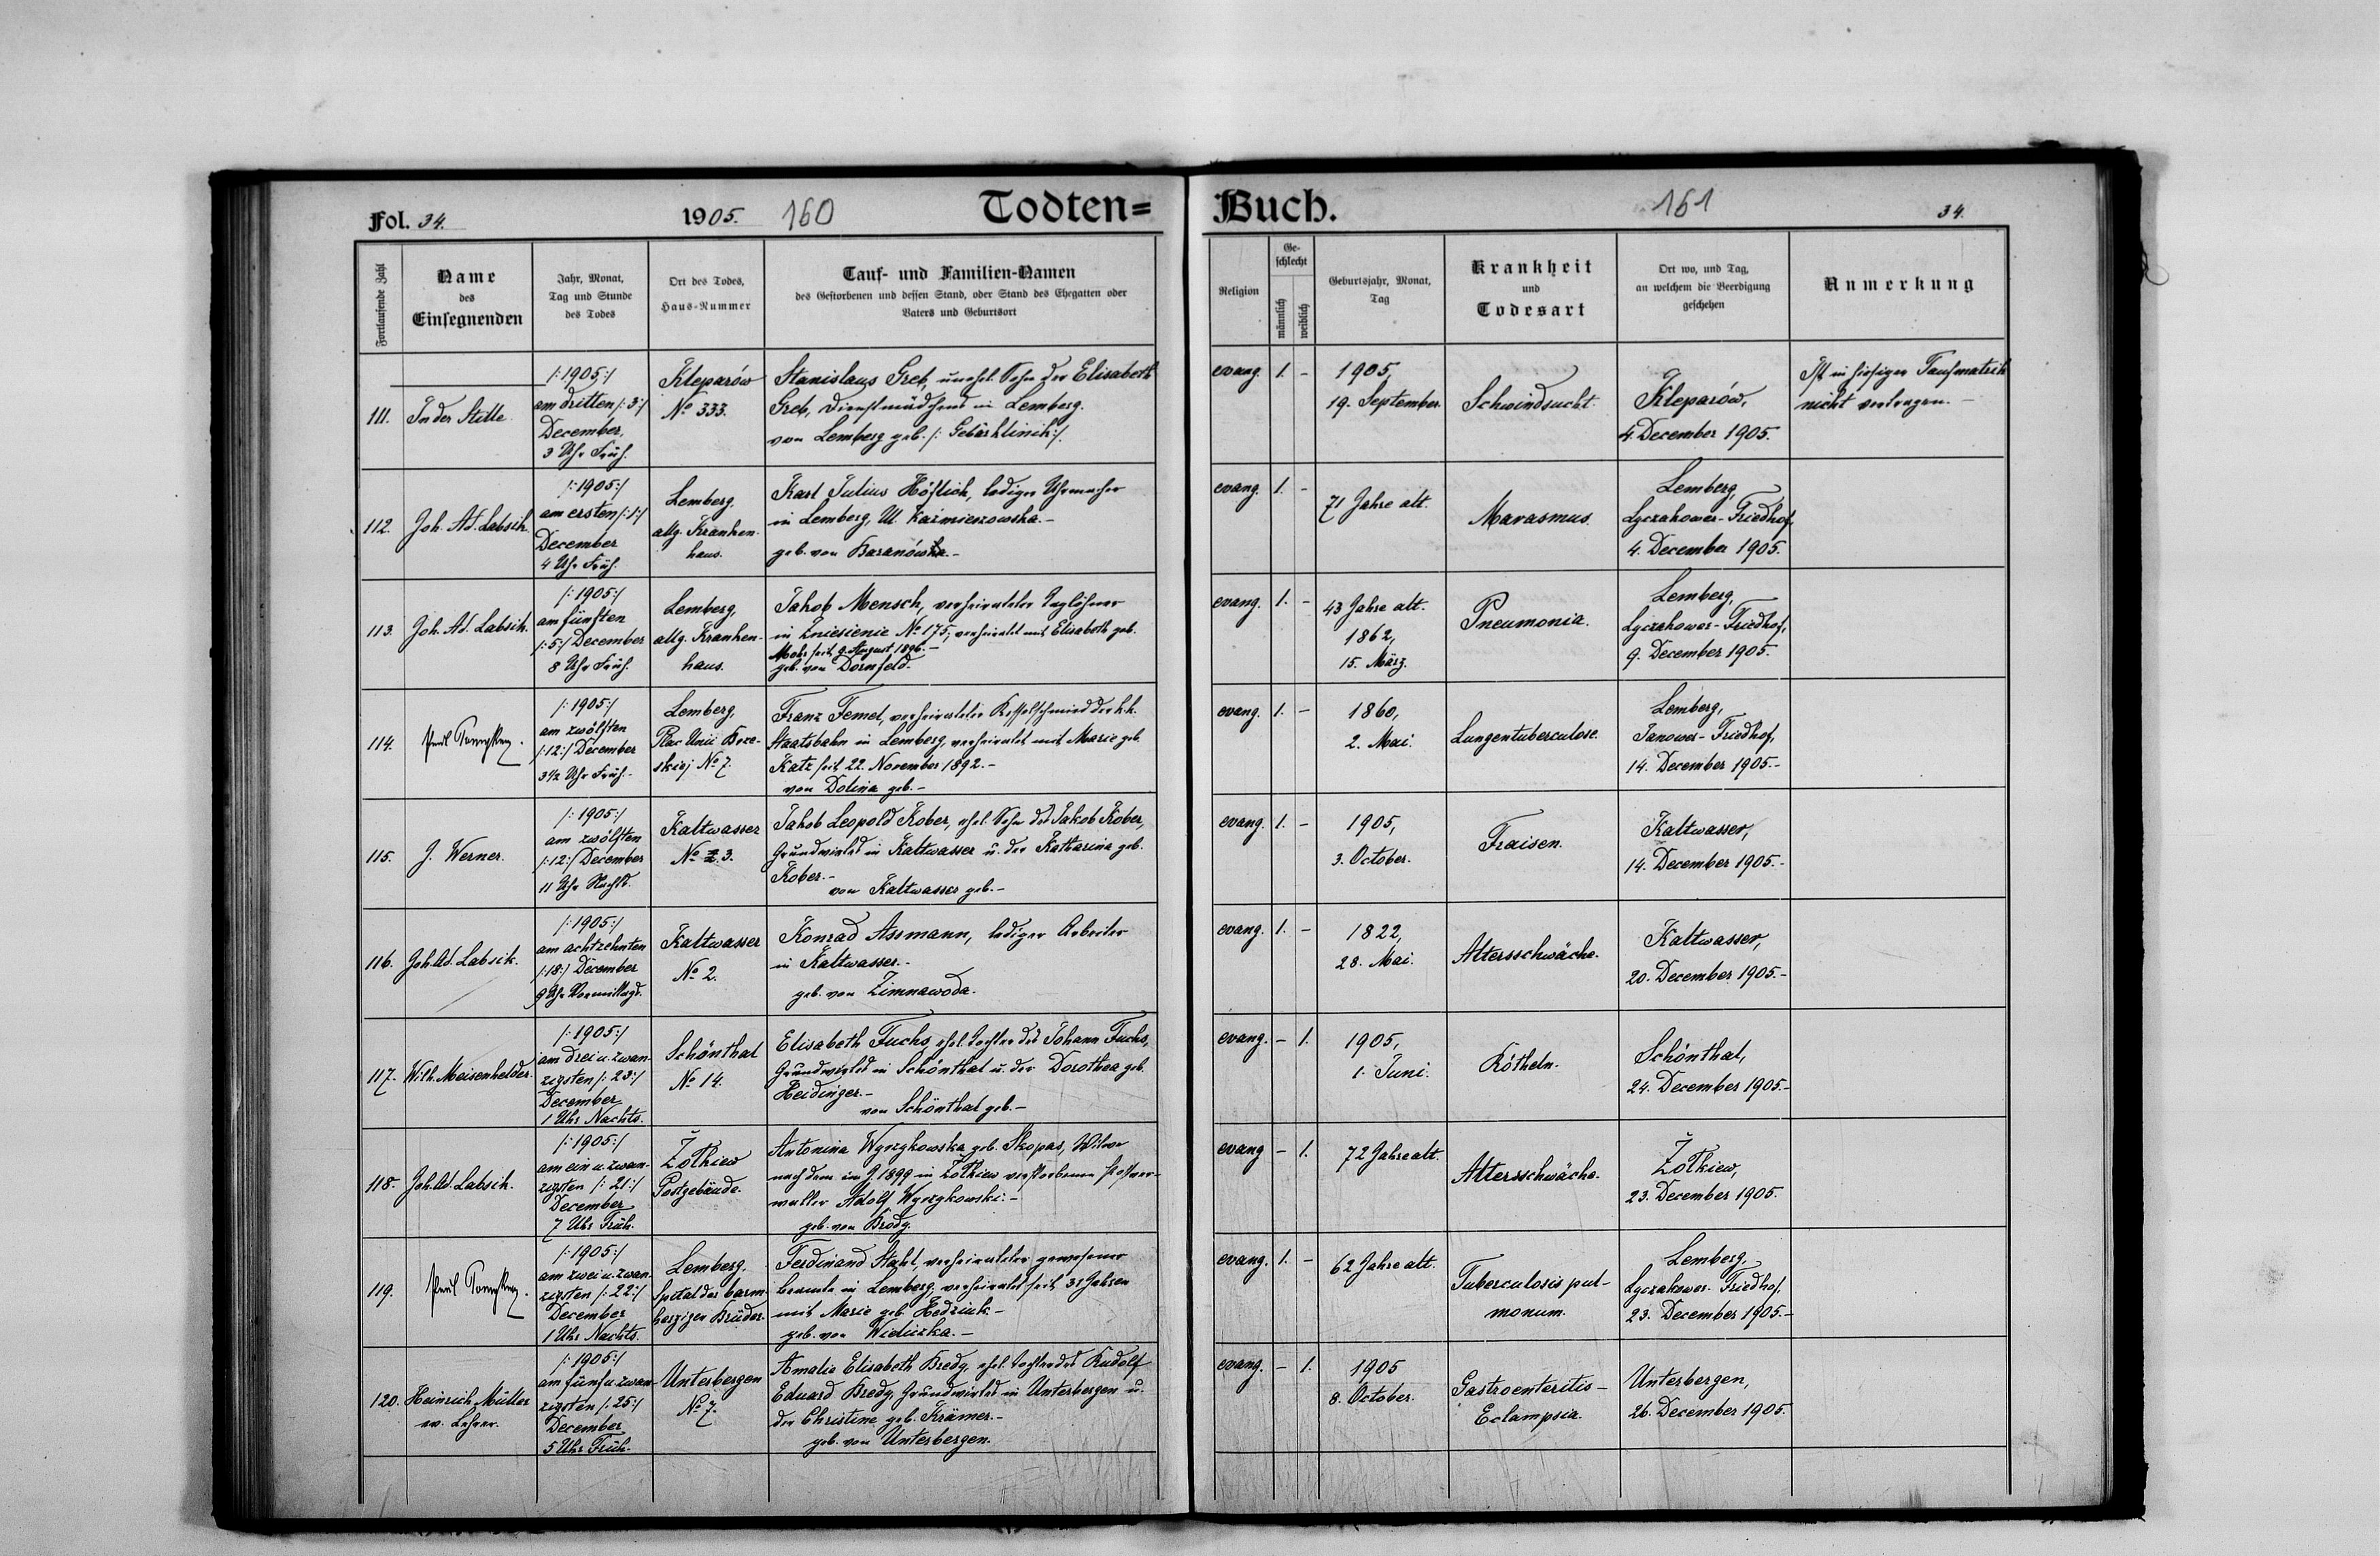 Fol. 34.
1905.
160
Todten=
Fortlaufende Zahl
Name
des
Einsegnenden
Jahr, Monat,
Tag und Stunde
des Todes
Ort des Todes,
Haus-Nummer
Tauf- und Familien-Namen
des Gestorbenen und dessen Stand, oder Stand des Ehegatten oder
Vaters und Geburtsort
111.
In der Stille.
/:1905:/
am dritten /:3:/
December,
3 Uhr Früh.
Kleparów
No 333.
Stanislaus Greb, unehel. Sohn der Elisabeth
Greb, Dienstmädchens in Lemberg.
von Lemberg geb. /: Gebärklinik:/.
112.
Joh. Ad. Labsik.
/:1905:/
am ersten /:1:/
December
4 Uhr Früh.
Lemberg,
allg. Kranken-
haus.
Karl Julius Höflich, lediger Uhrmacher
in Lemberg, Ul. Kazmierzowska.-
geb. von Baranówka.-
113.
Joh. Ad. Labsik.
/:1905:/
am fünften
/:5:/ December
8 Uhr Früh.
Lemberg,
allg. Kranken-
haus.
Jakob Mensch, verheirateter Taglöhner
in Zniesienie No 175, verheiratet mit Elisabeth geb.
Mohr seit 9. August 1896.-
geb. von Dornfeld.-
114.
Paul
/:1905:/
am zwölften
/:12:/ December
3½ Uhr Früh.-
Lemberg,
Plac Unii Brze-
skiej No 7.
Franz Femel, verheirateter Kesselschmied der k.k.
Staatsbahn in Lemberg, verheiratet mit Marie geb.
Katz seit 22. November 1892.-
von Dolina geb.-
115.
J. Werner.
/:1905:/
am zwölften
/:12:/ December
11 Uhr Nachts.
Kaltwasser
No 3.
Jakob Leopold Kober, ehel. Sohn des Jakob Kober,
Grundwirtes in Kaltwasser u. der Katharina geb.
Kober.-
von Kaltwasser geb.-
116.
Joh. Ad. Labsik.
/:1905:/
am achtzehnten
/:18:/ December
9 Uhr Vormittags.
Kaltwasser
No 2.
Konrad Assmann, lediger Arbeiter
in Kaltwasser.-
geb. von Zimnawoda.
117.
Wilh. Meisenhelder.
/:1905:/
am drei u. zwan-
zigsten /:23:/
December
1 Uhr Nachts.
Schönthal
No 14.
Elisabeth Fuchs, ehel. Tochter des Johann Fuchs,
Grundwirtes in Schönthal u. der Dorothea geb.
Heidinger.-
von Schönthal geb.-
118.
Joh. Ad. Labsik.
/:1905:/
am ein u. zwan-
zigsten /:21:/
December
7 Uhr Früh.
Żołkiew
Postgebäude.
Antonina Wyczykowska geb. Skopas, Witwe
nach dem im J. 1899 in Żołkiew verstorbenen Postver-
walter Adolf Wyczykowski.-
geb. von Brody.
119.
Paul
/:1905:/
am zwei u. zwan-
zigsten /:22:/
December
1 Uhr Nachts.
Lemberg.
Spital der barm-
herzigen Brüder.
Ferdinand Stahl, verheirateter gewesener
Beamte in Lemberg, verheiratet seit 31 Jahren
mit Marie geb. Hodziuk.-
geb. von Wieliczka.-
120.
Heinrich Müller
ev. Lehrer.
/:1905:/
am fünf u. zwan-
zigsten /:25:/
December
5 Uhr Früh.
Unterbergen
No 7.
Amalie Elisabeth Bredy, ehel. Tochter des Rudolf
Eduard Bredy, Grundwirtes in Unterbergen u.
der Christine geb. Krämer.-
geb. von Unterbergen.
Buch.
161
34.
Religion
Ge-
schlecht
männlich
weiblich
Geburtsjahr, Monat,
Tag
Krankheit
und
Todesart
Ort wo, und Tag,
an welchem die Beerdigung
geschehen
Anmerkung
evang. 1. -
1905,
19. September.
Schwindsucht.
Kleparów,
4. December 1905.
Ist in hiesiger Taufmatrik
nicht vertragen.-
evang. 1. -
71 Jahre alt.
Marasmus.
Lemberg,
Lyczakower-Friedhof,
4. December 1905.
evang. 1. -
43 Jahre alt.
1862,
15. März.
Pneumonia.
Lemberg,
Lyczakower-Friedhof,
9. December 1905.
evang. 1. -
1860,
2. Mai.
Lungentuberculose.
Lemberg,
Janower-Friedhof,
14. December 1905.-
evang. 1. -
1905,
3. October.
Fraisen.
Kaltwasser,
14. December 1905.-
evang. 1. -
1822,
28. Mai.
Altersschwäche.
Kaltwasser,
20. December 1905.-
evang. - 1.
1905,
1. Juni.
Rötheln.
Schönthal,
24. December 1905.-
evang - 1.
72 Jahre alt.
Altersschwäche.
Żołkiew,
23. December 1905.
evang. 1. -
62 Jahre alt.
Tuberculosis pul-
monum.
Lemberg,
Lyczakower-Friedhof,
23. December 1905.-
evang. - 1.
1905
8. October.
Gastroenteritis-
Eclampsia.
Unterbergen,
26. December 1905.